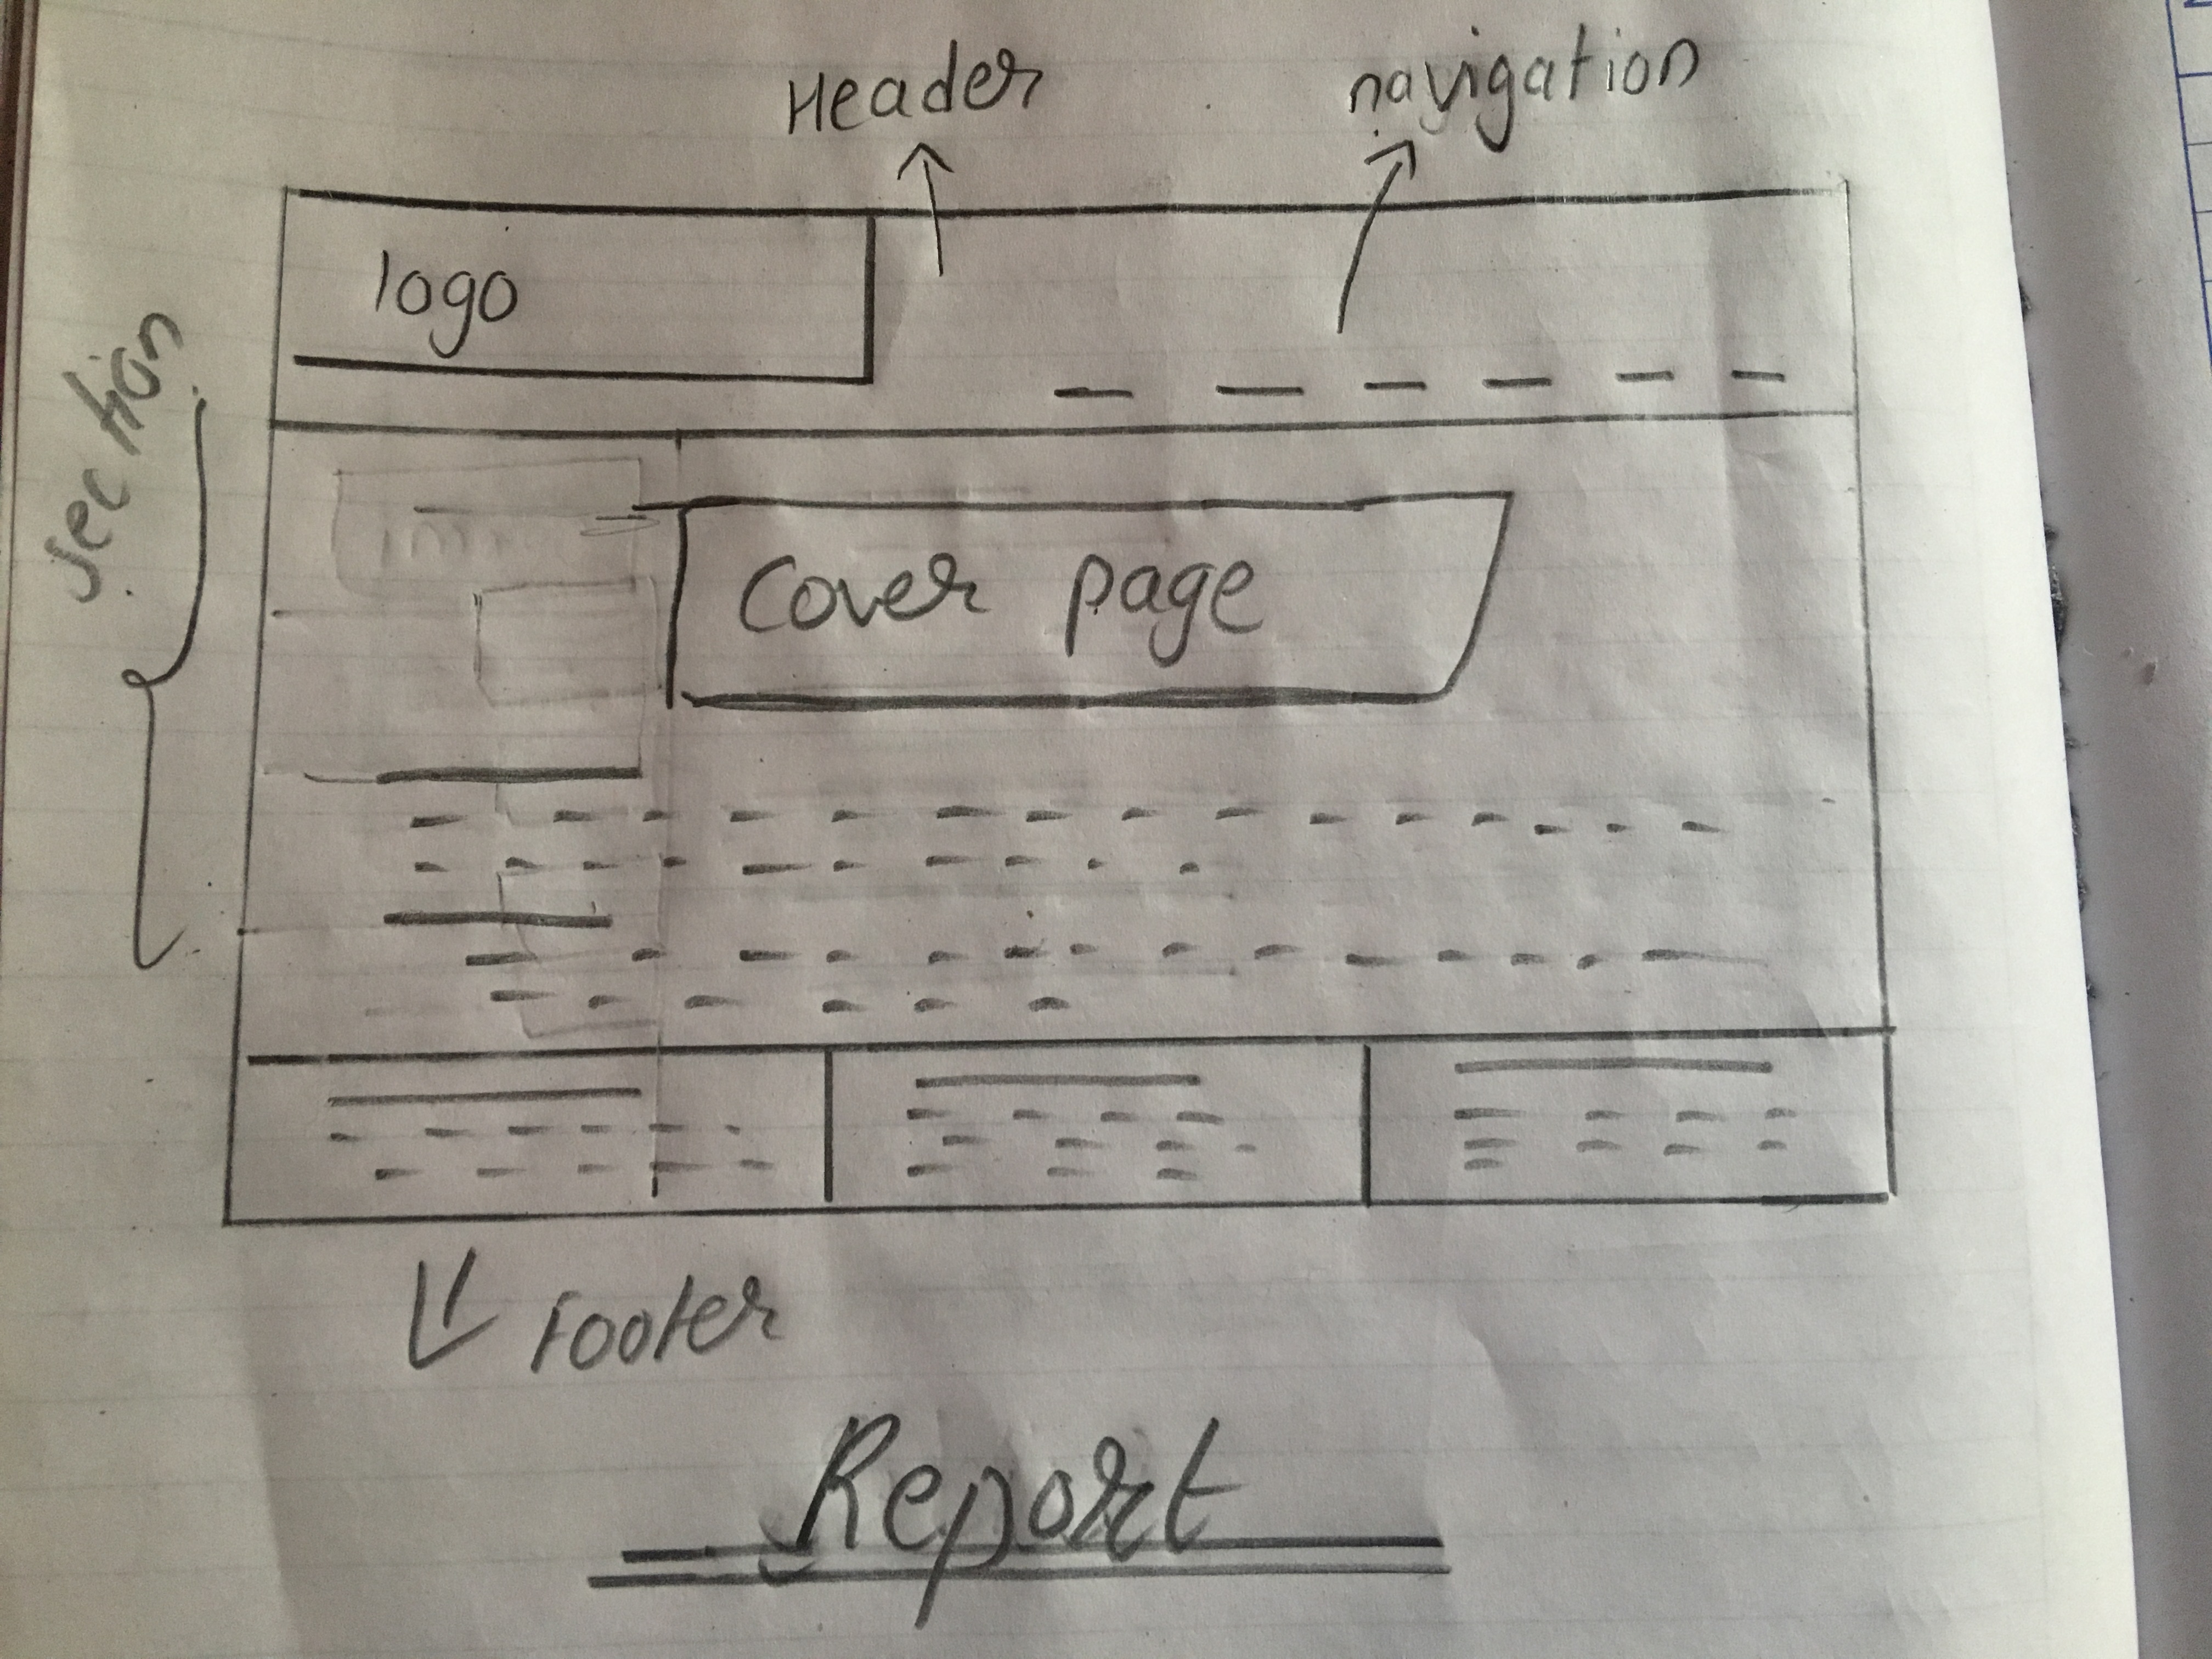 Header
navigation
logo
section
Cover page
Footer
Report